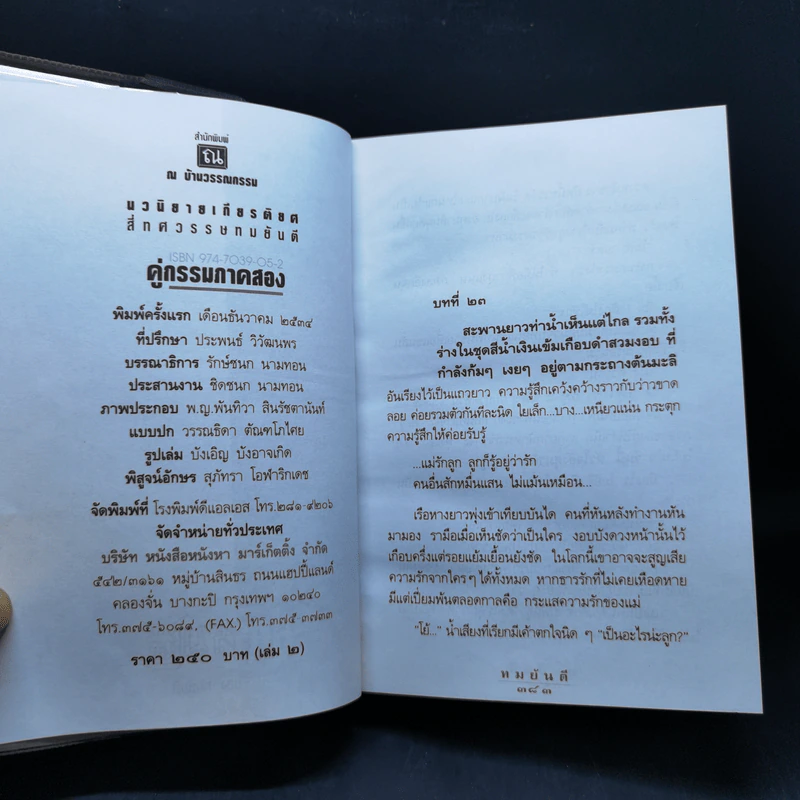 สำนักพิมพ์
ณ
ณ บ้านวรรณกรรม
นวนิยายเกียรติยศ
สี่ทศวรรษทมยันตี
ISBN 974-7039-05-2
คู่กรรมภาคสอง
พิมพ์ครั้งแรก เดือนธันวาคม ๒๕๓๔
ที่ปรึกษา ประพนธ์ วิวัฒนพร
บรรณาธิการ รักษ์ชนก นามทอน
ประสานงาน ชิดชนก นามทอน
ภาพประกอบ พ.ญ.พันทิวา สินรัชตานันท์
แบบปก วรรณธิดา ตัณฑโภไศย
รูปเล่ม บังเอิญ บังอาจเกิด
พิสูจน์อักษร สุภัทรา โอฬาริกเดช
จัดพิมพ์ที่ โรงพิมพ์ดีแอลเอส โทร.๒๘๑-๙๒๐๖
จัดจำหน่ายทั่วประเทศ
บริษัท หนังสือหนังหา มาร์เก็ตติ้ง จำกัด
๕๔๒/๓๑๖๑ หมู่บ้านสินธร ถนนแฮปปี้แลนด์
คลองจั่น บางกะปิ กรุงเทพฯ ๑๐๒๔๐
โทร.๓๗๕-๖๐๘๙, (FAX.) โทร.๓๗๕ ๓๗๓๓
ราคา ๒๕๐ บาท (เล่ม ๒)
บทที่ ๒๓
สะพานยาวท่าน้ำเห็นแต่ไกล รวมทั้ง
ร่างในชุดสีน้ำเงินเข้มเกือบดำสวมงอบ ที่
กำลังก้มๆ เงยๆ อยู่ตามกระถางต้นมะลิ
อันเรียงไว้เป็นแถวยาว ความรู้สึกเคว้งคว้างราวกับว่าวขาด
ลอย ค่อยรวมตัวกันทีละนิด ใยเล็ก...บาง...เหนียวแน่น กระตุก
ความรู้สึกให้ค่อยรับรู้
...แม่รักลูก ลูกก็รู้อยู่ว่ารัก
คนอื่นสักหมื่นแสน ไม่แม้นเหมือน...
เรือหางยาวพุ่งเข้าเทียบบันได คนที่หันหลังทำงานหัน
มามอง รามือเมื่อเห็นชัดว่าเป็นใคร งอบบังดวงหน้านั้นไว้
เกือบครึ่งแต่รอยแย้มเยื้อนยังชัด ในโลกนี้เขาอาจจะสูญเสีย
ความรักจากใครๆ ได้ทั้งหมด หากธารรักที่ไม่เคยเหือดหาย
มีแต่เปี่ยมพ้นตลอดกาลคือ กระแสความรักของแม่
"โย้..." น้ำเสียงที่เรียกมีเค้าตกใจนิด ๆ "เป็นอะไรน่ะลูก?"
ทมยันตี
๓๘๓